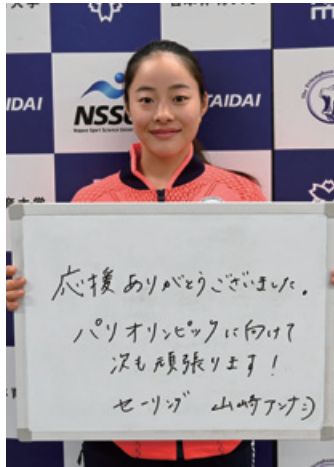 NSSU
Nippon Sport Science University
TAIDAI
応援ありがとうございました。
パリオリンピックに向けて
次も頑張ります！
セーリング 山崎アンナ:)